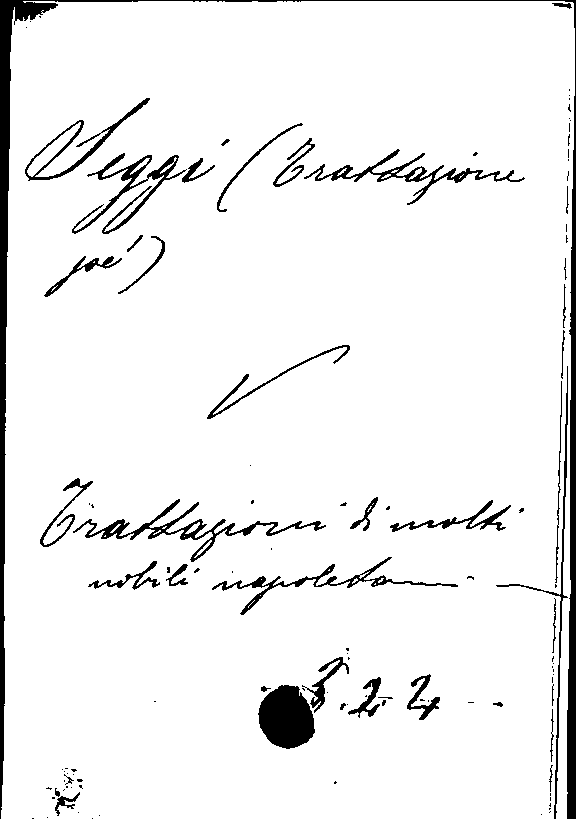 Seggi (Trattazione
pei)
V
Trattazioni di molti
nobili napoletani
3.22